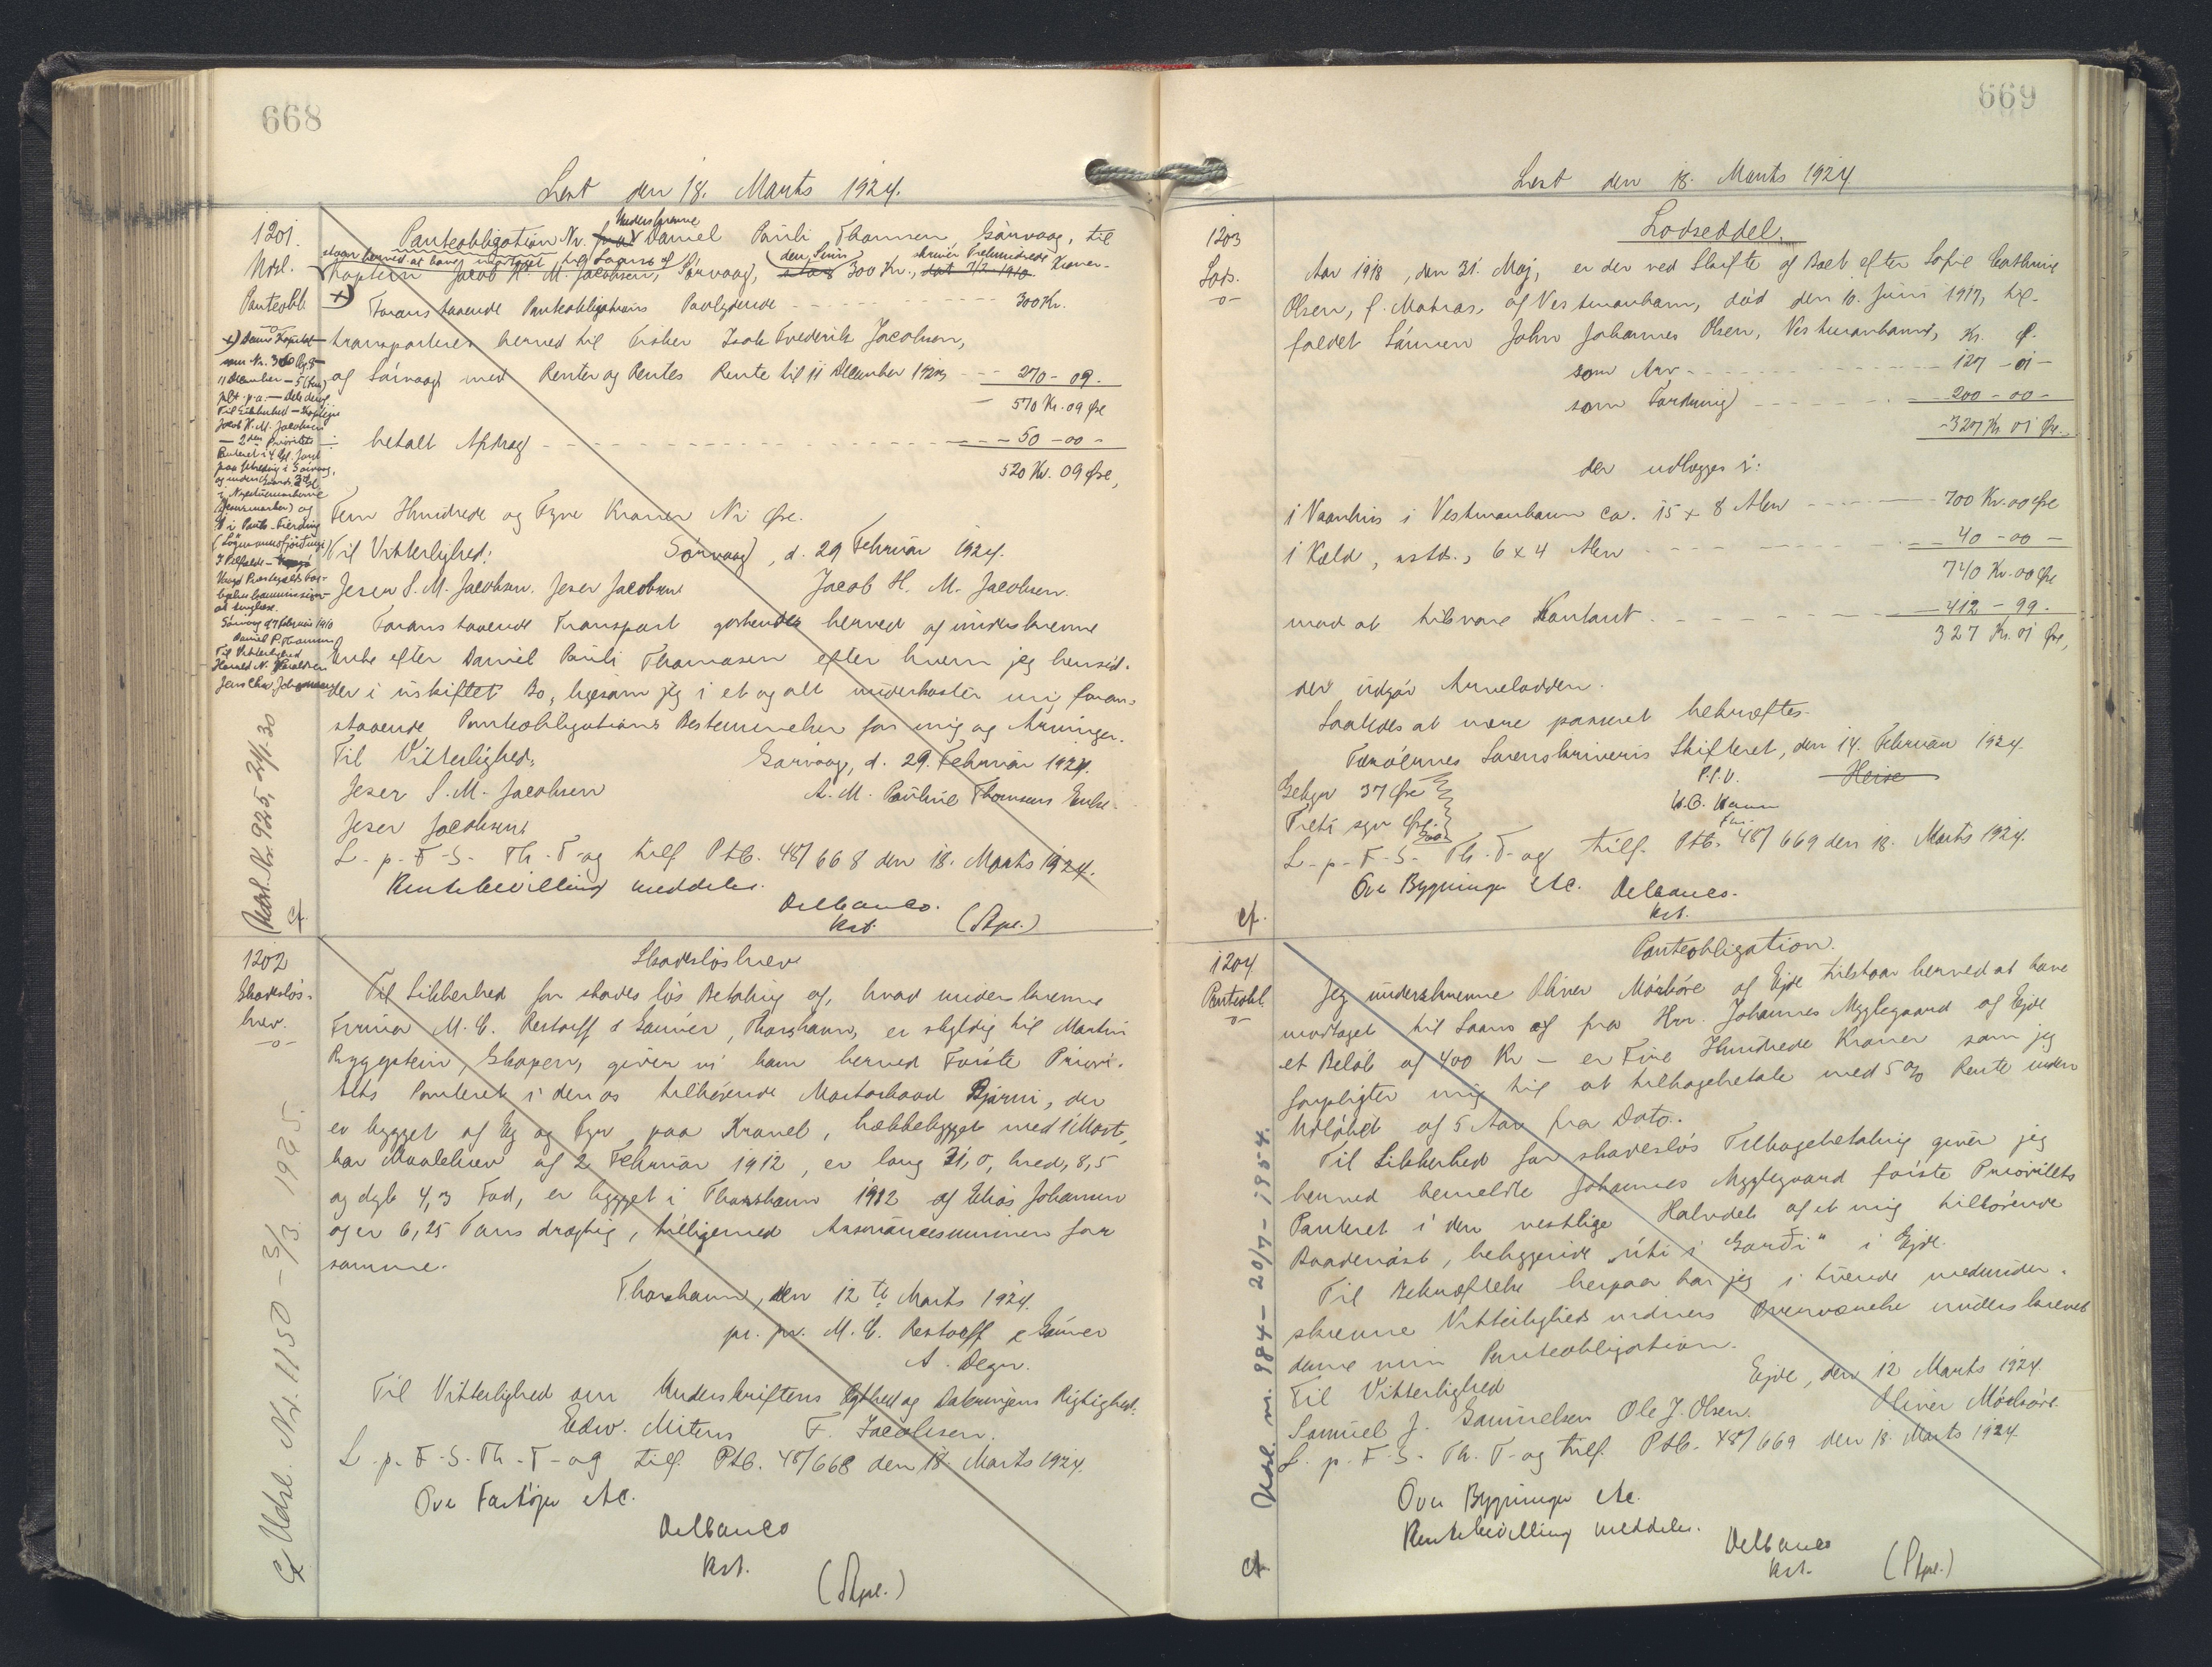 668
Læst den 18. Marts 1924.
1201.
Udsl.
Panteobl.
Panteobligation Nr. fra Underskrevne Daniel Pauli Thomsen Sörvaag, til
staar herved at have modtaget til Laans af den Sum skriver Trehundrede
Kaptein Jacob H. M. Jacobsen, Sörvaag, stor 300 Kr., dat 7/2 1910. Kroner.
+) Foranstaaende Panteobligations Paalydende 300 Kr.
transporteres herved til Fisker Isak Frederik Jacobsen,
af Sörvaag med Renter og Rentes Rente til 11 December 1923 270 - 09.
570 Kr. 09 Øre
÷ betalt Afdrag 50 - 00 -
520 Kr. 09 Øre,
Fem Hundrede og Tyve Kroner Ni Øre.
Til Vitterlighed: Sörvaag, d. 29 Februar 1924.
Jeser S. M. Jacobsen. Jeser Jacobsen Jacob H. M. Jacobsen.
Foranstaaende Transport godkendes herved af underskrevne
Enke efter Daniel Pauli Thomasen efter hvem jeg hensid-
der i uskiftet Bo, ligesom jeg i et og alt underkaster mig foran-
staaende Panteobligations Bestemmelser for mig og Arvinger.
Til Vitterlighed: Sörvaag, d. 29. Februar 1924.
Jeser S. M. Jacobsen A. M. Pauline Thomsens Enke.
Jeser Jacobsen
L. p. F. S. Th. T. og tilf. Ptb. 48/668 den 18. Marts 1924.
Rentebevilling meddeles.
Delbanco.
kst. (Stpl.)
+) Samt Kapital
11 December - 5 (fem)
pCt. p.a.
Til Sikkerhed - Kaptejn
Jacob H. M. Jacobsen
- 2den Prioritets
Panteret i 4 Gl. Jord
Sörvaag d 7 Februar 1910
Daniel P. Thomsen
Til Vitterlighed
Udsl. Nr. 925, 24/1-30
cf.
1202
Skadeslös-
brev.
-o-
Skadeslösbrev
Til Sikkerhed for skadeslös Betaling af, hvad underskrevne
Firma M. C. Restorff & Sönner, Thorshavn, er skyldig til Martin
Ryggstein, Skopen, giver vi ham herved Förste Priori-
tets Panteret i den os tilhörende Motorbaad Bjarni, der
er bygget af Eg og Fyr paa Kravel, hækbebygget med 1 Mast,
har Maalebrev af 2 Februar 1912, er lang 31,0, bred, 8,5
og dyb 4,3 Fod, er bygget i Thorshavn 1912 af Elias Johansen
og er 6,25 Tons drægtig, tilligemed Assurancesummen for
samme.
Thorshavn, den 12te Marts 1924.
pr. pr. M. C. Restorff & Sönner
A. Degn.
Til Vitterlighed om Underskriftens Ægthed og Dateringens Rigtighed.
Edw. Mitens F. Jacobsen.
L. p. F. S. Th. T. og tilf. Ptb. 48/668 den 18. Marts 1924.
Ove Fartöjer etc.
Delbanco
kst.
(Stpl.)
cf Udsl. Nr. 1150 - 3/3 1925.
669
Læst den 18. Marts 1924.
1203
Lods.
-o-
Lodseddel.
Aar 1918, den 31. Maj, er der ved Skifte af Boet efter Sofie Cathrine
Olsen, f. Matras, af Vestmanhavn, död den 10. Juni 1917, til-
faldet Sönnen John Johannes Olsen, Vestmanhavn, Kr. Ø.
som Arv 127 - 01 -
som Fordring 200 - 00 -
327 Kr 01 Øre.
der udlægges i:
i Vaanhus i Vestmanhavn ca. 15 x 8 Alen 700 Kr. 00 Øre
i Kæld, astds., 6 x 4 Alen 40 - 00 -
740 Kr. 00 Øre
mod at tilsvare Kontant 412 - 99.
327 Kr. 01 Øre,
der udgör Arvelodden.
Saaledes at være passeret bekræftes.
Færöernes Sorenskriveris Skifteret, den 14. Februar 1924.
P.S.V. Heise
Gebyr 37 Øre
Treti syv Øre
L. p. F. S. Th. T. og tilf. Ptb. 48/669 den 18. Marts 1924.
Ove Bygninger etc. Delbanco.
kst.
cf.
1204
Panteobl.
-o-
Panteobligation.
Jeg underskrevne Oliver Mörköre af Ejde tilstaar herved at have
modtaget til Laans af fra Hrr. Johannes Myglegaard af Ejde
et Beløb af 400 Kr - er Fire Hundrede Kroner som jeg
forpligter mig til at tilbagebetale med 5 % Rente inden
Udløbet af 5 Aar fra Dato.
Til Sikkerhed for skadeslös Tilbagebetaling giver jeg
herved bemeldte Johannes Myglegaard förste Prioritets
Panteret i den vestlige Halvdel af et mig tilhörende
Baadenöst, beliggende "úti í Garði" i Ejde.
Til Bekræftelse herpaa har jeg i tvende medunder-
skrevne Vitterligheds vidners Overværelse underskrevet
denne min Panteobligation.
Ejde, den 12 Marts 1924.
Til Vitterlighed Oliver Mörköre.
Samuel J. Samuelsen Ole J. Olsen.
L. p. F. S. Th. T. og tilf. Ptb. 48/669 den 18. Marts 1924
Ove Bygninger etc.
Rentebevilling meddeles.
Delbanco
kst. (Stpl.)
Udsl. nr. 984 - 20/7 - 1954.
cf.